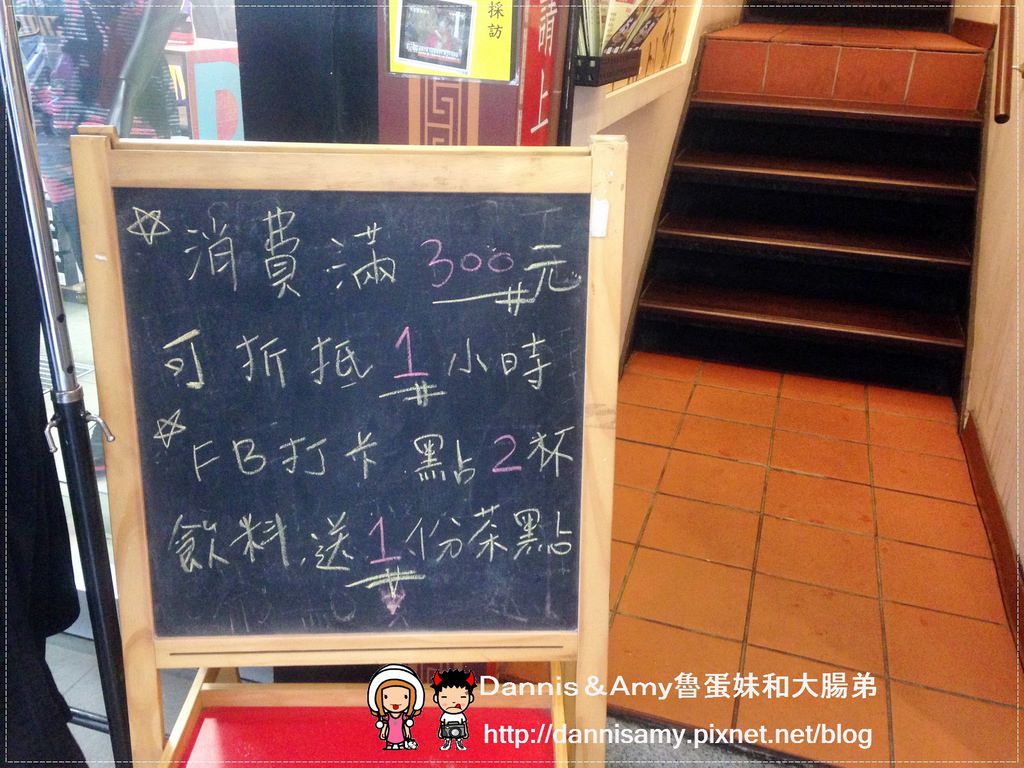 採訪
請上
☆消費滿300元
可折抵1小時
☆FB打卡點2杯
飲料送1份茶點
Dannis&Amy魯蛋妹和大腸弟
http://dannisamy.pixnet.net/blog